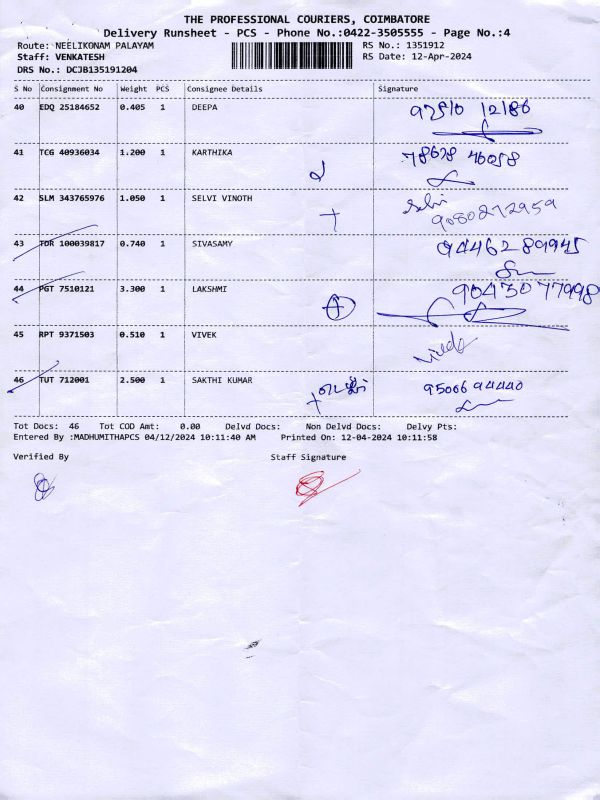 THE PROFESSIONAL COURIERS, COIMBATORE
Delivery Runsheet - PCS - Phone No.:0422-3505555 - Page No.:4
Route: NEELIKONAM PALAYAM RS No.: 1351912
Staff: VENKATESH RS Date: 12-Apr-2024
DRS No.: DCJB135191204
S No Consignment No Weight PCS Consignee Details Signature
40 EDQ 25184652 0.405 1 DEEPA
41 TCG 40936034 1.200 1 KARTHIKA
42 SLM 343765976 1.050 1 SELVI VINOTH Selvi
9080272959
43 TDR 100039817 0.740 1 SIVASAMY 9446289945
44 PGT 7510121 3.300 1 LAKSHMI 9043077998
45 RPT 9371503 0.510 1 VIVEK
46 TUT 712001 2.500 1 SAKTHI KUMAR 9500694440
Tot Docs: 46 Tot COD Amt: 0.00 Delvd Docs: Non Delvd Docs: Delvy Pts:
Entered By :MADHUMITHAPCS 04/12/2024 10:11:40 AM Printed On: 12-04-2024 10:11:58
Verified By Staff Signature